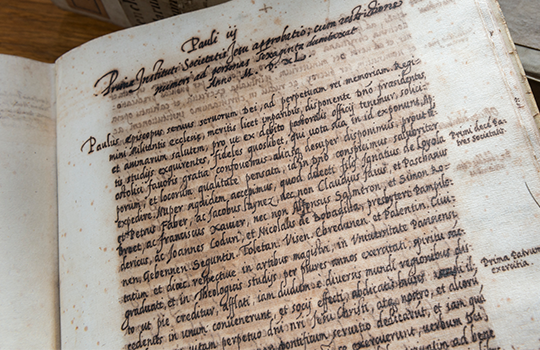 Pauli iij
Prima Instituti Societatis Iesu approbatio; cum restrictione
numeri ad personas sexaginta dumtaxat
Anno M. D. XL.
Paulus episcopus seruus seruorum Dei, ad perpetuam rei memoriam. Regi-
mini militantis eccłens, meritis licet imparibus, disponente Dño presidentes,
et animarum salutem, pro ut ex debito pastoralis officij tenemur, solici-
tis studijs exquirentes, fideles quoslibet, qui uota sua in id exponunt, ap-
ostolici fauoris gratia confouemus, desuper disponimus, prout tem-
porum, et locorum qualitate pensata, id in Dño conspicimus salubriter
expedire. Nuper siquidem accepimus, quod dilecti filij Ignatius de Loyola
et Petrus Faber, ac Jacobus Laynez, nec non Claudius Jaius, et Paschasius
broet, ac Franciscus Xauier, nec non Alfonsus Salmeron, et Simon Ro-
dericus, ac Joannes Coduri, et Nicolaus de Bobadilla, presbyteri Pampilo-
nen Gebennen. Seguntin. Toletani Visen. Ebredunen. et Palentin. Ciui-
tatum et dioec. respectiue in artibus magistri, in Vniuersitate Parisiensi,
graduati, et in theologicis studijs per plures annos exercitati, spiritu sanc-
to ut pie creditur, afflati, iam dudum e diuersis mundi regionibus dis-
cedentes in unum conuenerunt, et socij effecti, abdicatis
uitam perpetuo dni nri Jesu Christi, atque nostro, et aliorum
pontificum seruitio dedicarunt, et iam
exercuerunt, uerbum
Primi decem Pa-
tres societatis
Prima Patrum
exercitia